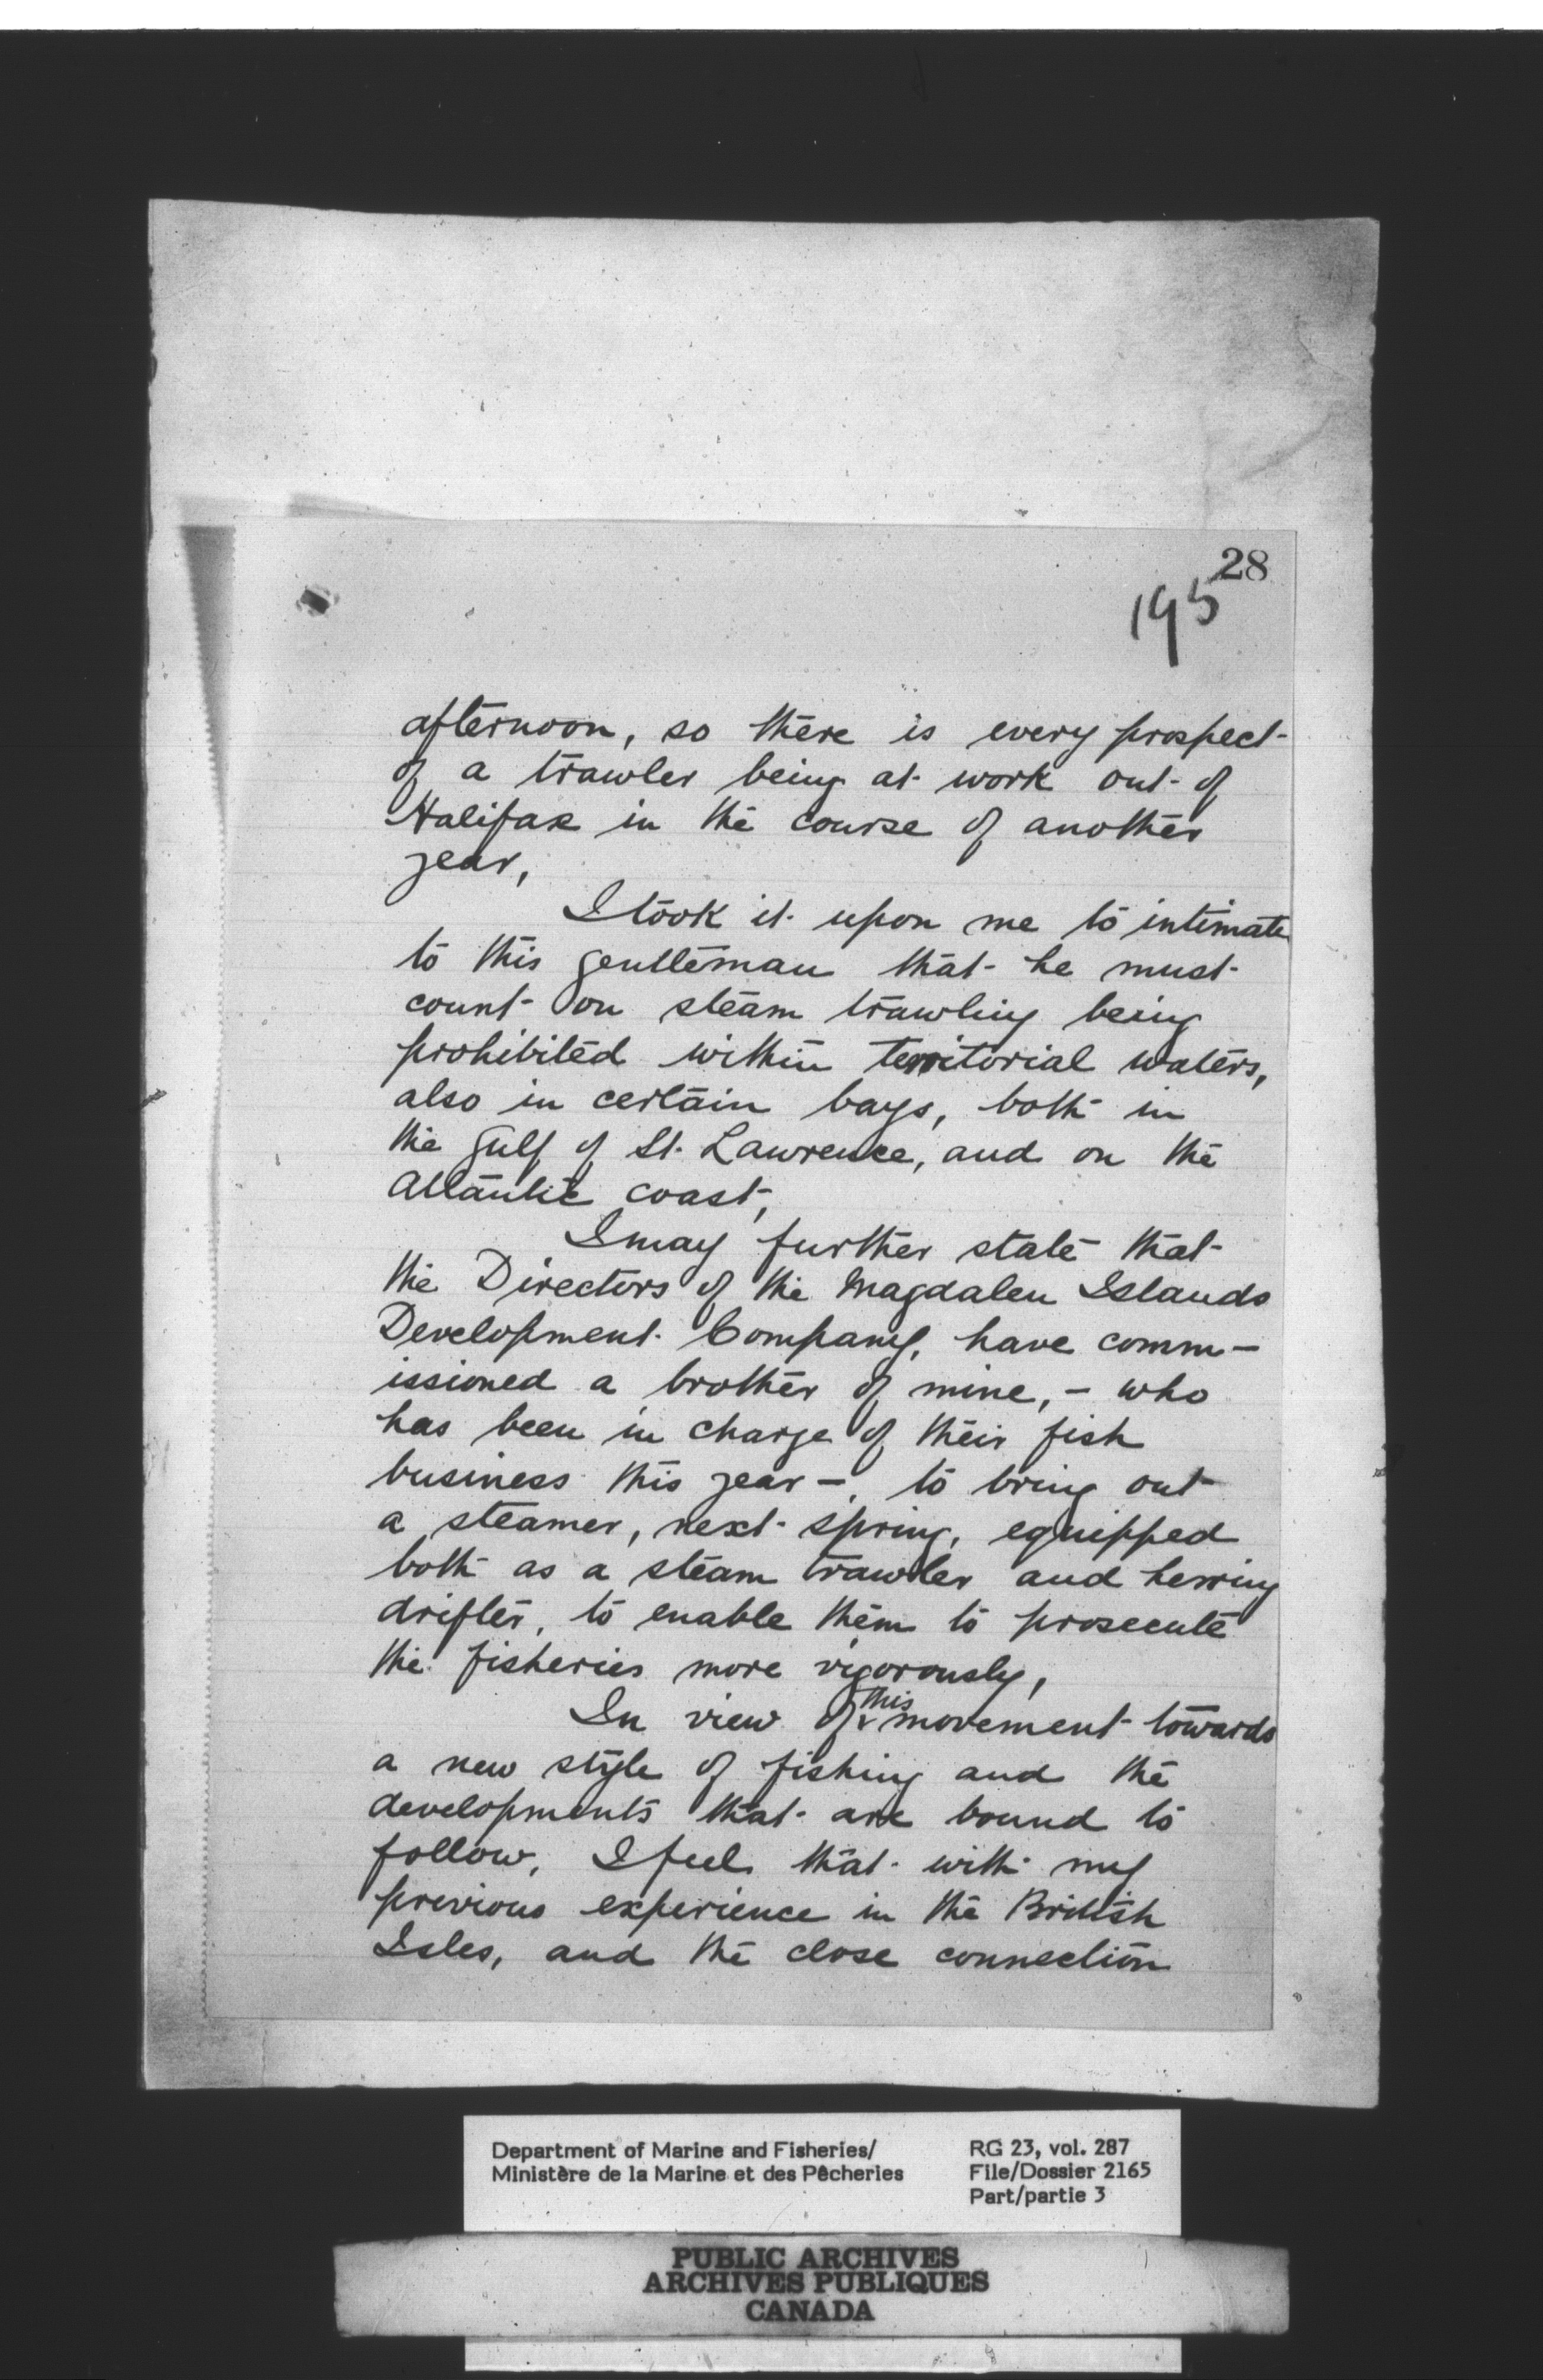 28
195
afternoon, so there is every prospect
of a trawler being at work out of
Halifax in the course of another
year,
I took it upon me to intimate
to this gentleman that he must
count on steam trawling being
prohibited within territorial waters,
also in certain bays, both in
the Gulf of St. Lawrence, and on the
Atlantic coast,
I may further state that
the Directors of the Magdalen Islands
Development Company, have comm-
issioned a brother of mine, - who
has been in charge of their fish
business this year -, to bring out
a steamer, next spring, equipped
both as a steam trawler and herring
drifter, to enable them to prosecute
the fisheries more vigorously,
In view of this movement towards
a new style of fishing and the
developments that are bound to
follow, I feel that with my
previous experience in the British
Isles, and the close connection
Department of Marine and Fisheries/
Ministère de la Marine et des Pêcheries
RG 23, vol. 287
File/Dossier 2165
Part/partie 3
PUBLIC ARCHIVES
ARCHIVES PUBLIQUES
CANADA